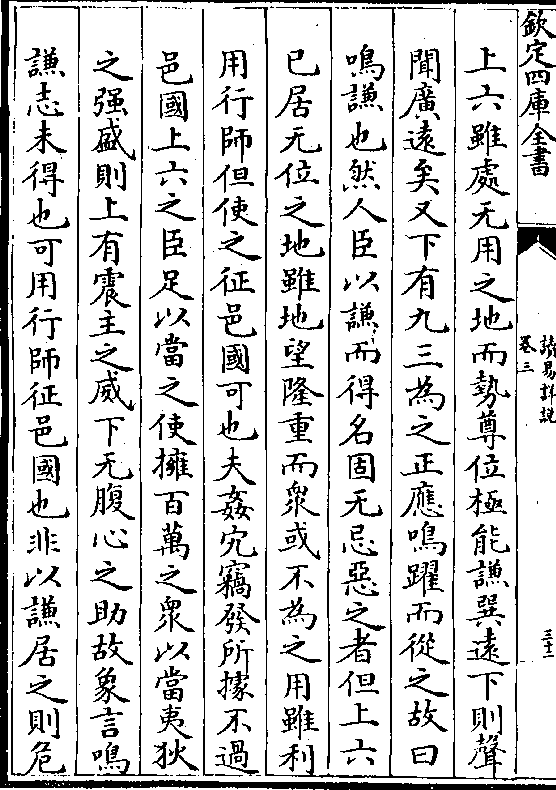 欽定四庫全書
讀易詳說
卷三
三十二
上六雖處无用之地而勢尊位極能謙巽遠下則聲
聞廣遠矣又下有九三為之正應鳴躍而從之故曰
鳴謙也然人臣以謙而得名固无忌惡之者但上六
已居无位之地雖地望隆重而衆或不為之用雖利
用行師但使之征邑國可也夫姦宄竊發所據不過
邑國上六之臣足以當之使擁百萬之衆以當夷狄
之强盛則上有震主之威下无腹心之助故象言鳴
謙志未得也可用行師征邑國也非以謙居之則危